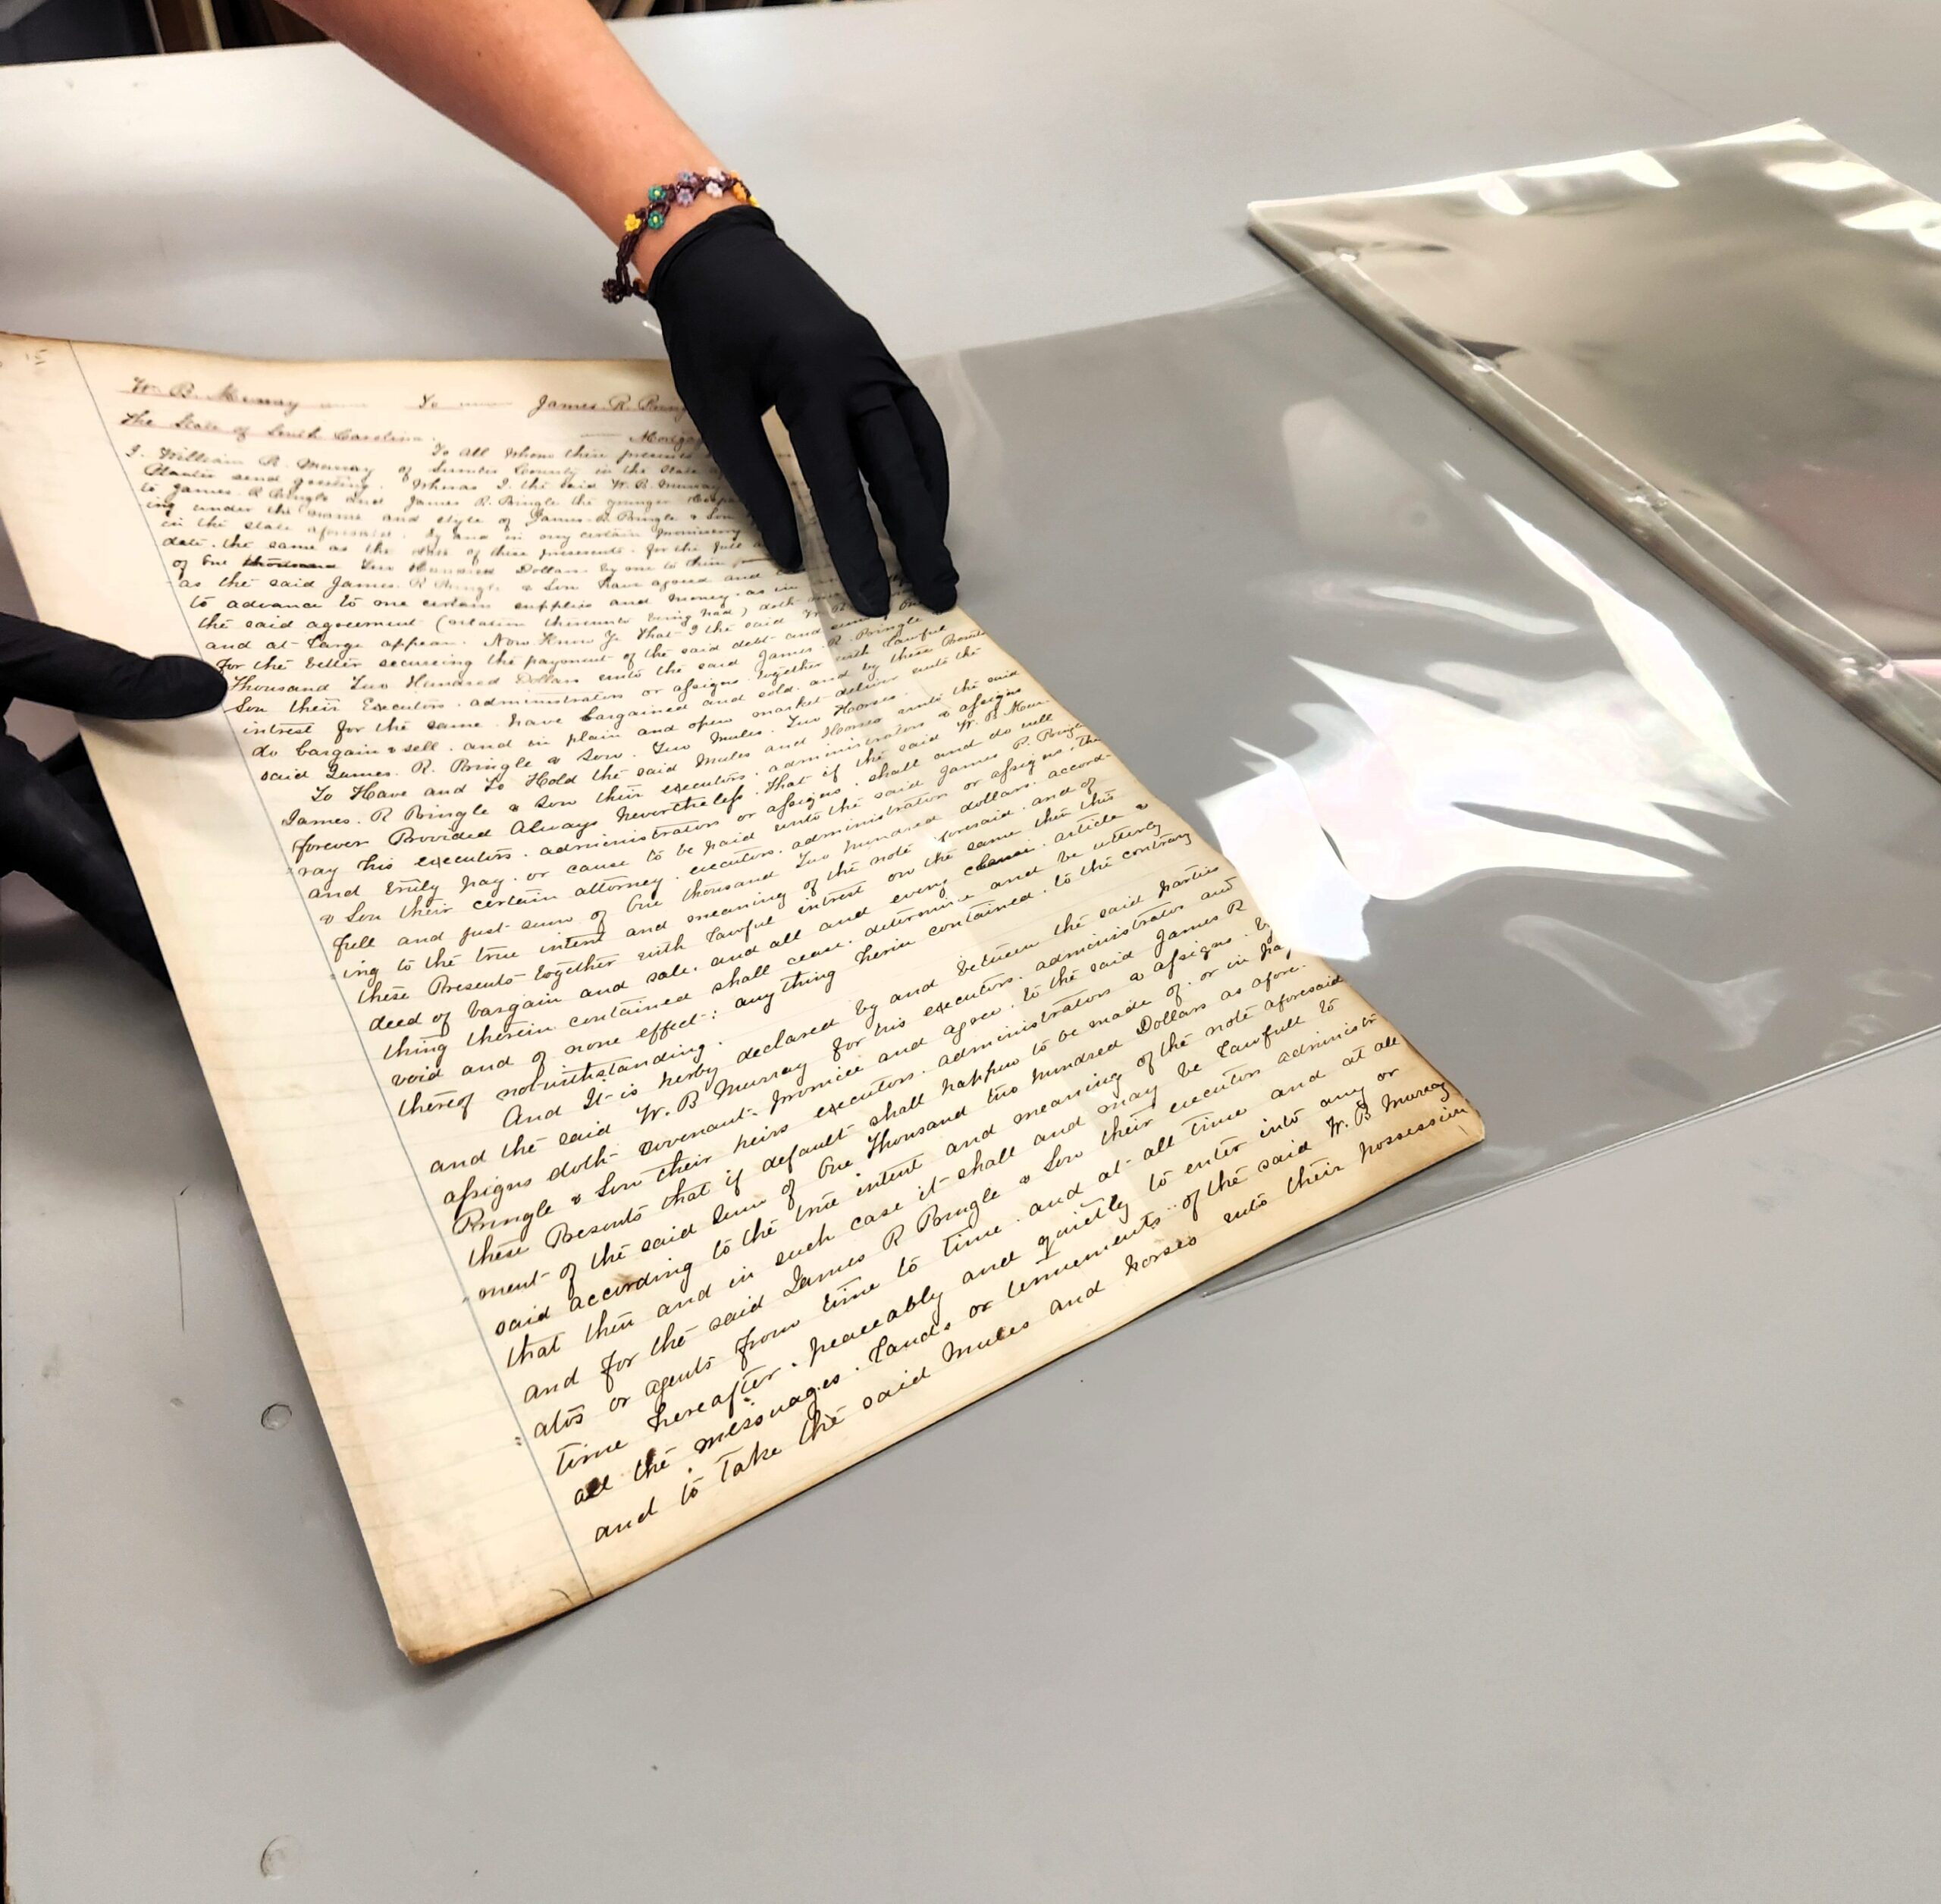 Wm B. Murray to James. R. Pring
The State of South Carolina. Mortga
To all whom these presents
I. William B. Murray of Sumter County in the State
Planter send greeting. Whereas I. the said W. B. Murray
to James. R Pringle and James R. Pringle the younger
ing under the name and style of James. R. Pringle & Son
in the state aforesaid. by and in my certain promissory
date. the same as the date of these presents. for the full
of One thousand Two Hundred Dollars.
as the said James. R Pringle. & Son have agreed and
to advance to me certain supplies and money. as in
the said agreement (relation thereunto being had) doth
and at-Large appear. Now Know Ye That I the said W. B
for the better secureing the payment of the said debt and
Thousand Two Hundred Dollars unto the said James. R. Pringle
Son their Executors. administrators or assigns together with Lawful
intrest for the same. have bargained and sold. and by these Presents
do bargain & sell. and in plain and open market deliver unto the
said James. R. Pringle & Son. Two Mules. Two Horses.
To Have and To Hold the said Mules and Horses unto the said
James. R Pringle & Son their executors. administrators & assigns
forever Provided Always Nevertheless. That if the said W. B. Mur-
ray his executors. administrators or assigns. shall and do well
and truly pay. or cause to be paid unto the said James R. Pringle
& Son their certain attorney. executors. administrators or assigns. the
full and just-sum of One thousand Two hundred dollars. accord-
ing to the true intent and meaning of the note aforesaid. and of
these Presents together with Lawful intrest on the same then this
deed of bargain and sale. and all and every clause. article &
thing therein contained shall cease. determine and be utterly
void and of none effect: any thing herin contained. to the contrary
thereof not-withstanding.
And It-is herby declared by and between the said parties
and the said W. B Murray for his executors. administrators and
assigns doth covenant-promise and agree. to the said James R
Pringle & Son their heirs executors. administrators & assigns.
these Presents that if default-shall happen to be made of. or in pay
ment-of the said Sum of One Thousand two hundred Dollars as afore.
said according to the true intent and meaning of the note aforesaid
that then and in such case it-shall and may be Lawfull to
and for the said James R Pringle & Son their executors administr
ators or agents from time to time. and at-all time and at all
time hereafter. peaceably and quietly to enter into any or
all the messuages. Lands or tennements of the said W. B Murray
and to take the said Mules and horses into their possession